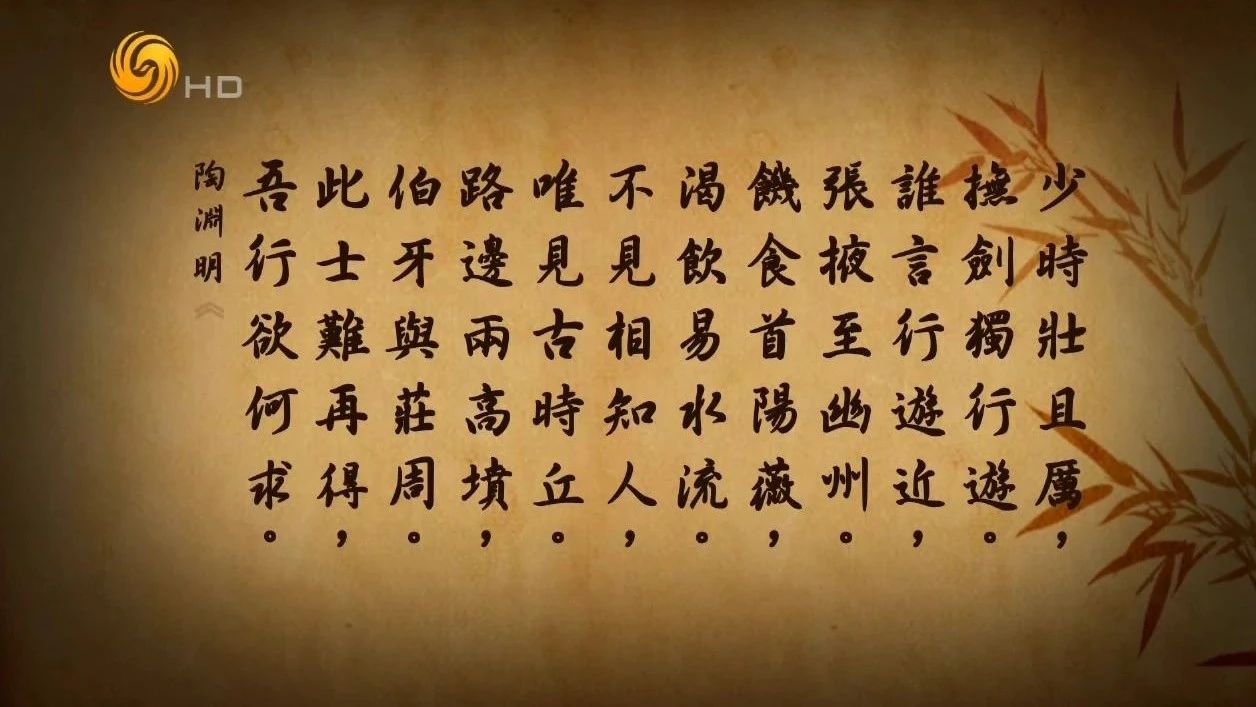 HD
少時壯且厲，
撫劍獨行遊。
誰言行遊近，
張掖至幽州。
饑食首陽薇，
渴飲易水流。
不見相知人，
唯見古時丘。
路邊兩高墳，
伯牙與莊周。
此士難再得，
吾行欲何求。
陶淵明